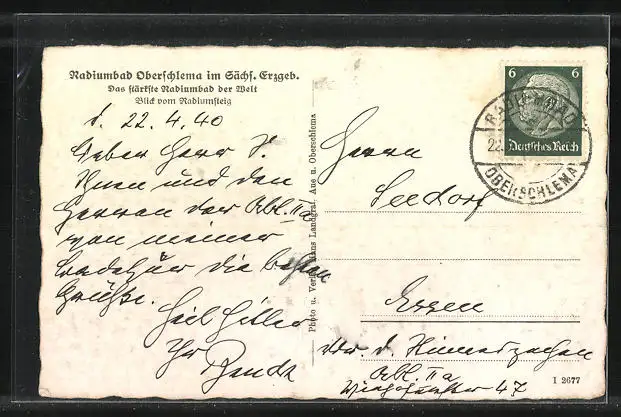 Radiumbad Oberschlema im Sächs. Erzgeb.
Das stärkste Radiumbad der Welt
Blick vom Radiumsteig
d. 22. 4. 40
Lieber Herr S.
Ihnen und den
Herren der Abt. IIa
von meiner
Badekur die besten
Grüße.
Heil Hitler
Ihr
Photo u. Verl. Hans Landgraf, Aue u. Oberschlema
6 6
Deutsches Reich
RADIUMBAD
22.
OBERSCHLEMA
Herrn
Seedorf
Essen
Abt. IIa
47
I 2677